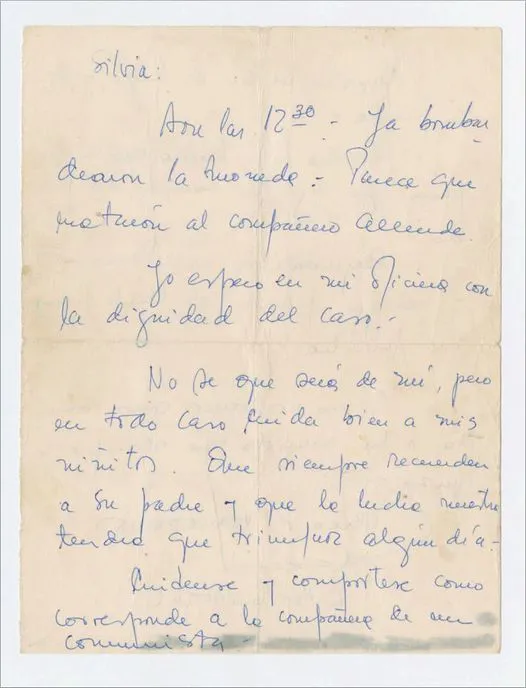 Silvia:
Son las 12 30 - Ya bombar
dearon la moneda - Parece que
mataron al compañero Allende.
Yo espero en mi oficina con
la dignidad del caso.-
No se que será de mí, pero
en todo caso cuida bien a mis
niñitos. Que siempre recuerden
a su padre y que la lucha nuestra
tendrá que triunfar algún día.-
Cuidense y comportese como
corresponde a la compañera de un
comunista -